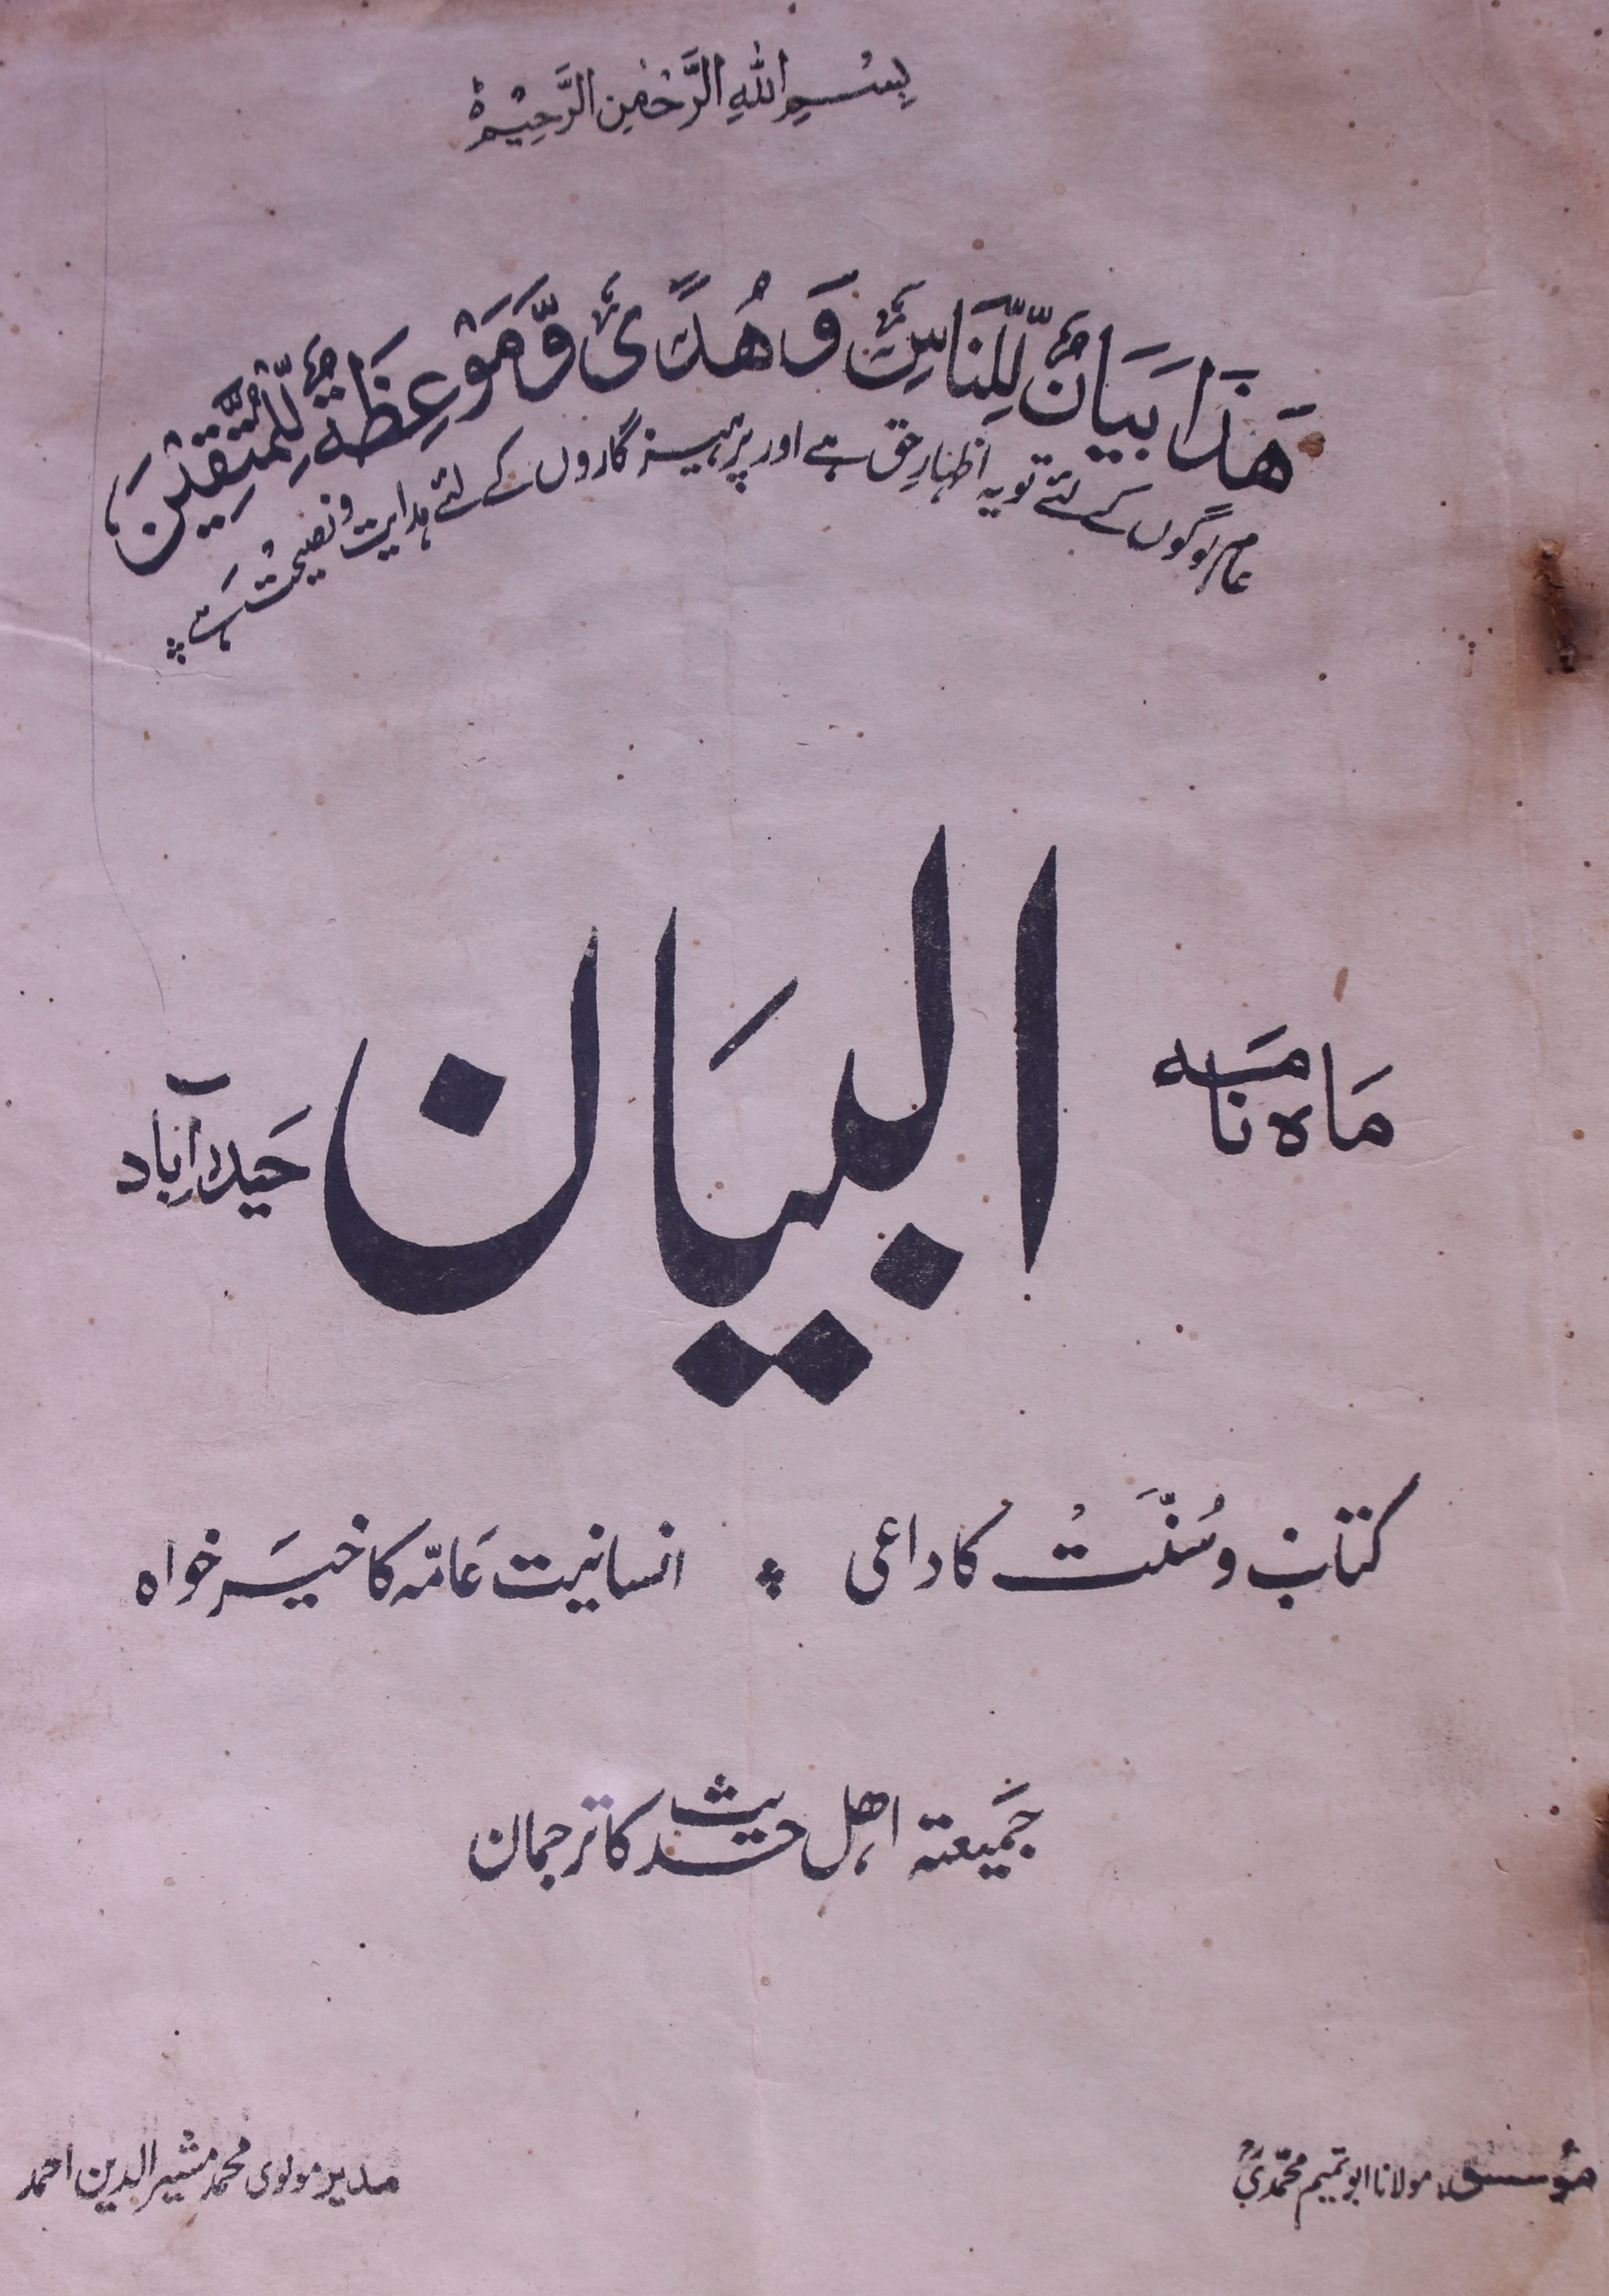 بِسْمِ اللهِ الرَّحْمٰنِ الرَّحِيْمِ
هَذَا بَيَانٌ لِّلنَّاسِ وَهُدًى وَّمَوْعِظَةٌ لِّلْمُتَّقِيْنَ
عام لوگوں کے لئے تو یہ اظہارِ حق ہے اور پرہیزگاروں کے لئے ہدایت و نصیحت ہے
ماہ نامہ
البیان
حیدرآباد
کتاب و سُنّت کا داعی ؞ انسانیت عامّہ کا خیر خواہ
جمیعتہ اھل حدیث کا ترجمان
مؤسس، مولانا ابو تمیم محمّدیؒ
مدیر مولوی محمد مشیر الدین احمد